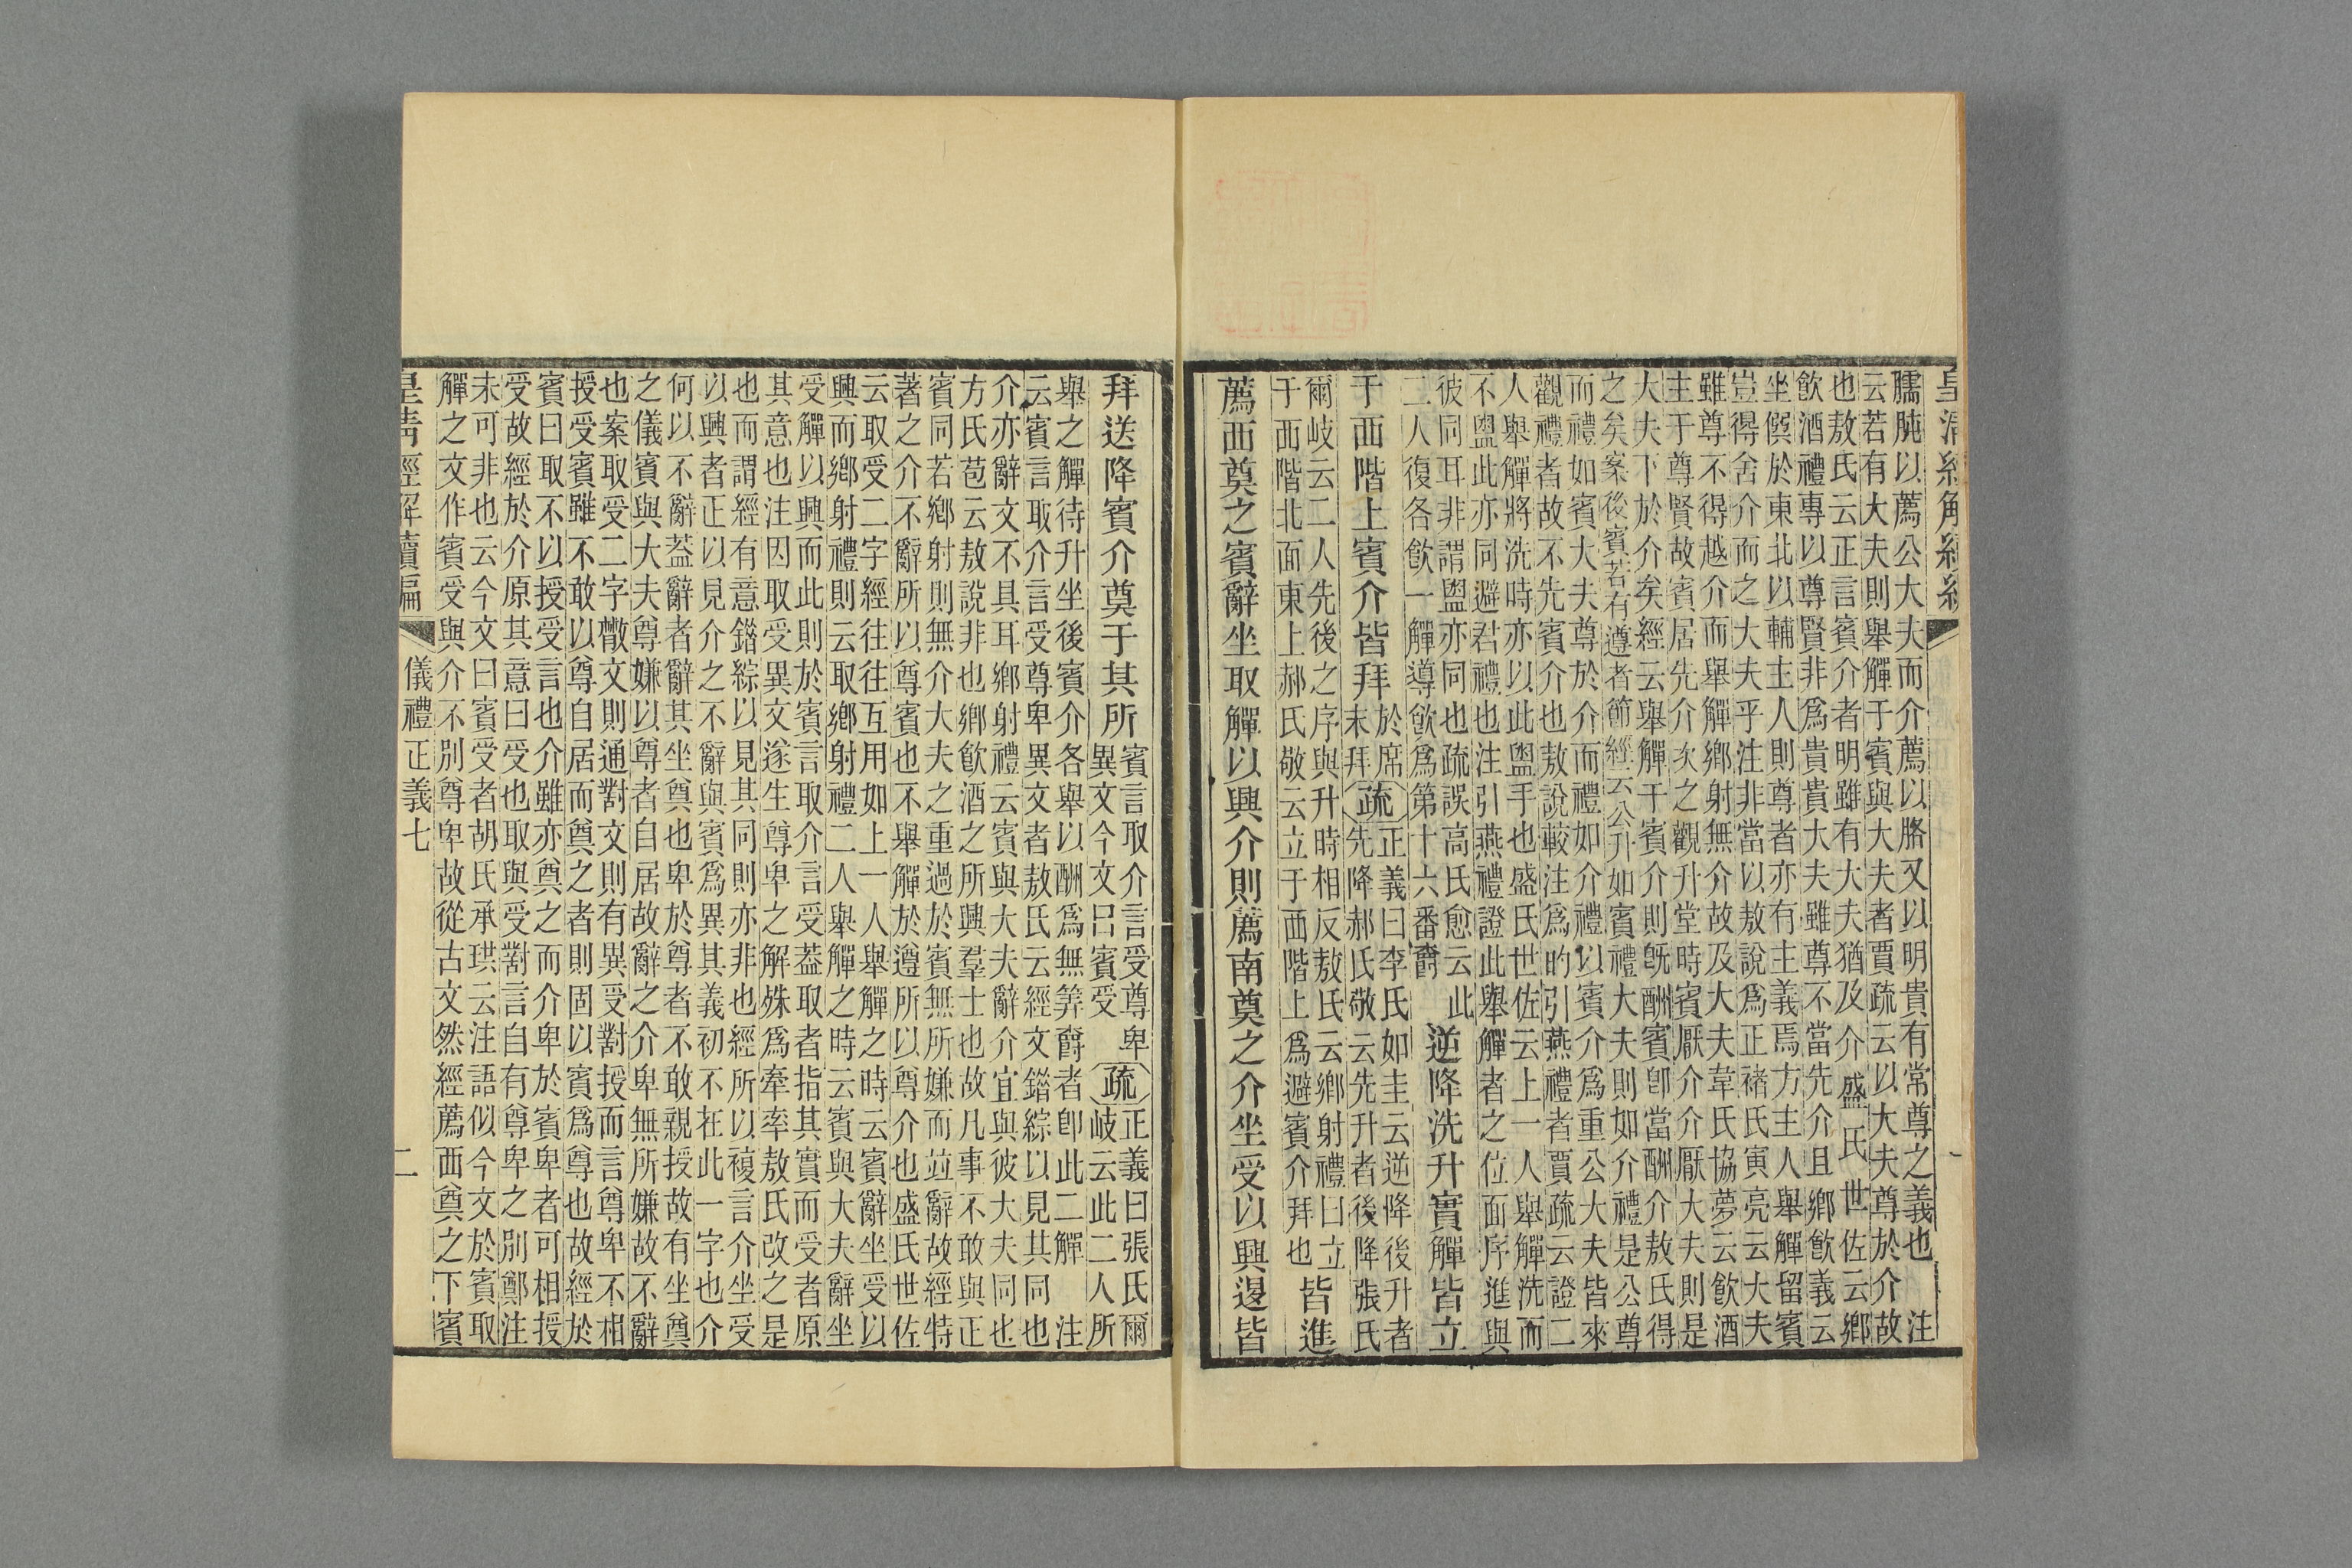 皇清經解續編
一
臑肫以薦公大夫而介薦以胳又以明貴有常尊之義也 注
云若有大夫則舉觶于賓與大夫者賈疏云以大夫尊於介故
也敖氏云正言賓介者明雖有大夫猶及介盛氏世佐云鄉
飮酒禮專以尊賢非爲貴貴大夫雖尊不當先介且鄉飮義云
坐僎於東北以輔主人則尊者亦有主義焉方主人舉觶留賓
豈得舍介而之大夫乎注非當以敖說爲正褚氏寅亮云大夫
雖尊不得越介而舉觶鄉射無介故及大夫韋氏協夢云飮酒
主于尊賢故賓居先介次之觀升堂時賓厭介介厭大夫則是
大夫下於介矣經云舉觶于賓介則旣酬賓卽當酬介敖氏得
之矣案後賓若有遵者節經云公升如賓禮大夫則如介禮是公尊
而禮如賓大夫尊於介而禮如介禮以賓介爲重公大夫皆來
觀禮者故不先賓介也敖說較注爲的引燕禮者賈疏云證二
人舉觶將洗時亦以此盥手也盛氏世佐云上一人舉觶洗而
不盥此亦同避君禮也注引燕禮證此舉觶者之位面序進與
彼同耳非謂盥亦同也疏誤高氏愈云此
二人復各飮一觶導飮爲第十六番爵
逆降洗升實觶皆立
于西階上賓介皆拜
於席
末拜
疏
正義曰李氏如圭云逆降後升者
先降郝氏敬云先升者後降張氏
爾岐云二人先後之序與升時相反敖氏云鄉射禮曰立
于西階北面東上郝氏敬云立于西階上爲避賓介拜也
皆進
薦西奠之賓辭坐取觶以興介則薦南奠之介坐受以興退皆
拜送降賓介奠于其所
賓言取介言受尊卑
異文今文曰賓受
疏
正義曰張氏爾
岐云此二人所
舉之觶待升坐後賓介各舉以酬爲無筭爵者卽此二觶 注
云賓言取介言受尊卑異文者敖氏云經文錯綜以見其同也
介亦辭文不具耳鄉射禮云賓與大夫辭介宜與彼大夫同也
方氏苞云敖說非也鄉飮酒之所興羣士也故凡事不敢與正
賓同若鄉射則無介大夫之重過於賓無所嫌而竝辭故經特
著之介不辭所以尊賓也不舉觶於遵所以尊介也盛氏世佐
云取受二字經往往互用如上一人舉觶之時云賓辭坐受以
興而鄉射禮則云取鄉射禮二人舉觶之時云賓與大夫辭坐
受觶以興而此則於賓言取介言受葢取者指其實而受者原
其意也注因取受異文遂生尊卑之解殊爲牽率敖氏改之是
也而謂經有意錯綜以見其同則亦非也經所以複言介坐受
以興者正以見介之不辭與賓爲異其義初不在此一字也介
何以不辭葢辭者辭其坐奠也卑於尊者不敢親授故有坐奠
之儀賓與大夫尊嫌以尊者自居故辭之介卑無所嫌故不辭
也案取受二字散文則通對文則有異受對授而言尊卑不相
授受賓雖不敢以尊自居而奠之者則固以賓爲尊也故經於
賓曰取不以授受言也介雖亦奠之而介卑於賓卑者可相授
受故經於介原其意曰受也取與受對言自有尊卑之別鄭注
未可非也云今文曰賓受者胡氏承珙云注語似今文於賓取
觶之文作賓受與介不別尊卑故從古文然經薦西奠之下賓
皇清經解續編
儀禮正義七
二